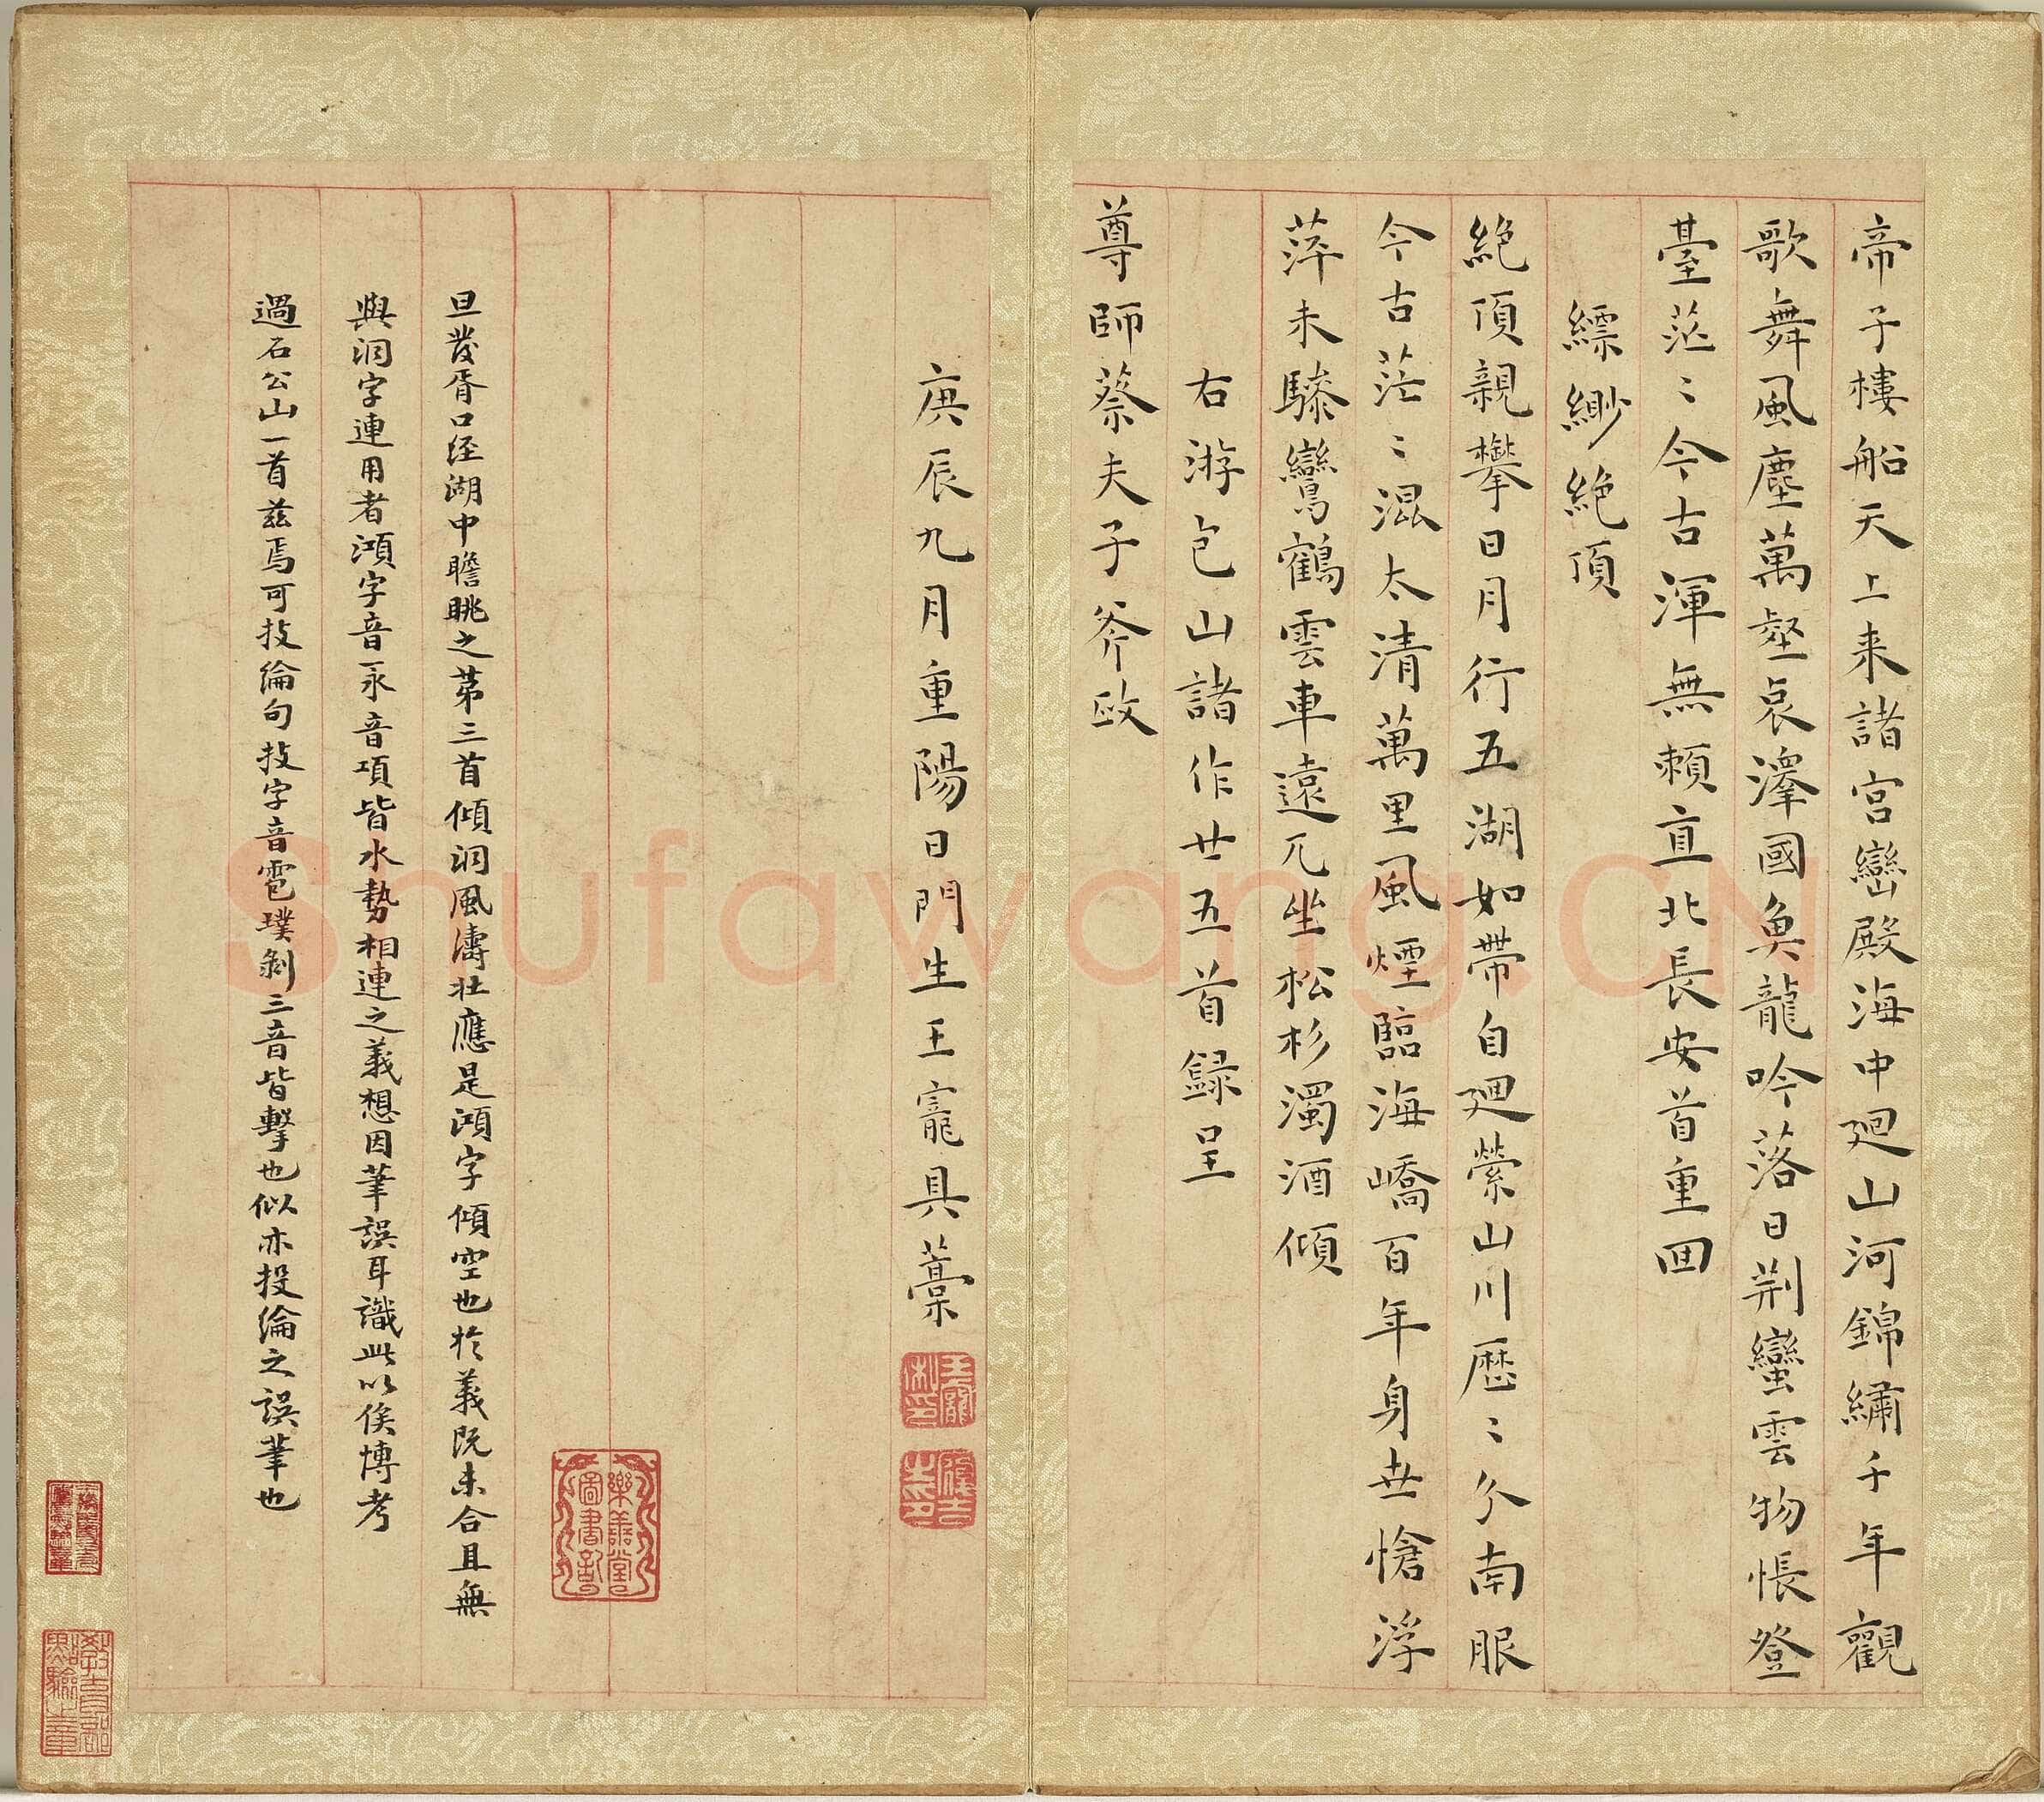 帝子樓船天上来諸宮巒殿海中廻山河錦繡千年觀
歌舞風塵萬壑哀澤國魚龍吟落日荆蠻雲物悵登
臺茫〻今古渾無頼直北長安首重囬
縹緲絶頂
絶頂親攀日月行五湖如帶自廻縈山川歷〻分南服
今古茫〻混太清萬里風煙臨海嶠百年身世愴浮
萍未驂鸞鶴雲車遠兀坐松杉濁酒傾
右游包山諸作廿五首録呈
尊師蔡夫子斧政
庚辰九月重陽日門生王寵具藁
旦發胥口经湖中瞻眺之第三首傾洞風濤壯應是澒字傾空也於義既未合且無
與洞字連用者澒字音汞音項皆水勢相連之義想因筆誤耳識此以俟博考
過石公山一首兹焉可技綸句技字音雹璞剝三音皆擊也似亦投綸之誤筆也
樂善堂圖書記
Shufawang.CN